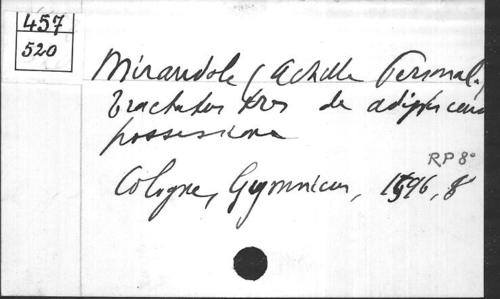 457
520
Mirandole (Achille Personal.)
Tractatus tres de adipiscenda
possessione
RP 8°
Cologne, Gymnicus, 1596, 8°